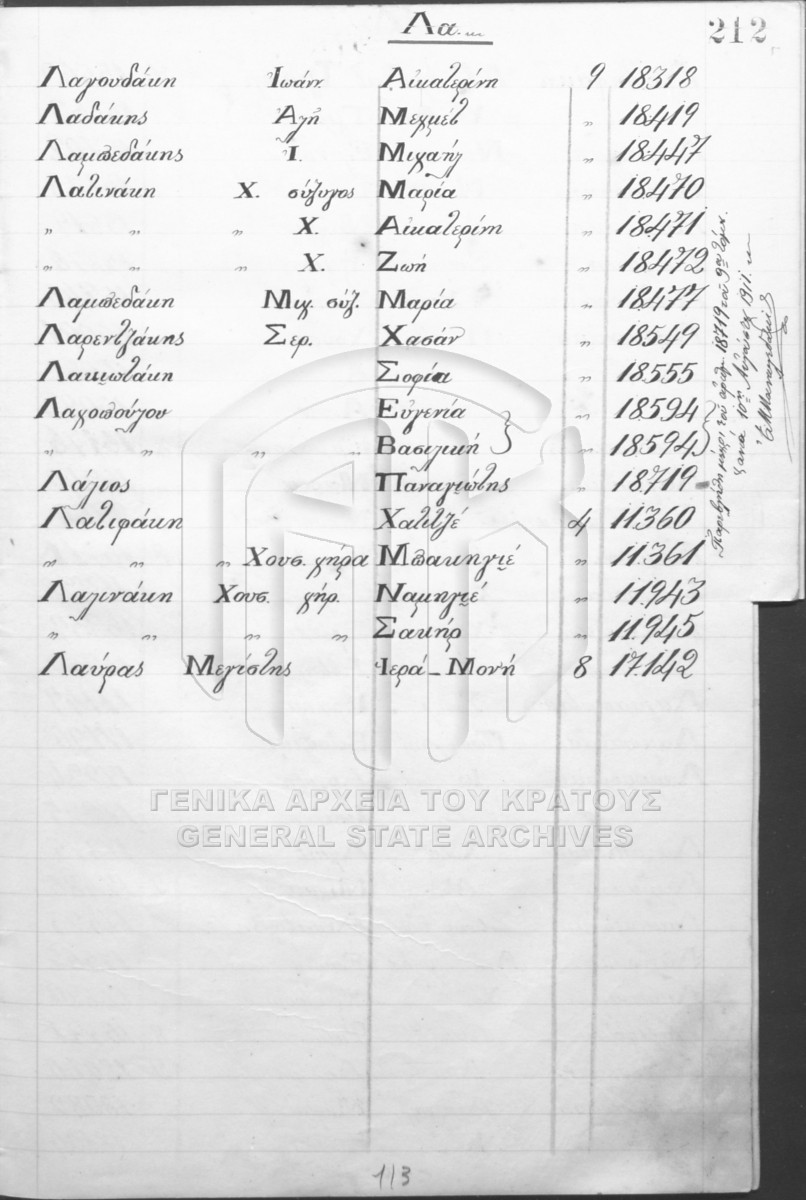 Λα...
212
Λαγουδάκη Ἰωάνν. Αἰκατερίνη 9 18318
Λαδάκης Ἀλῆ Μεχμέτ " 18419
Λαμπεδάκης Ἰ. Μιχαήλ " 18447
Λατινάκη Χ. σύζυγος Μαρία " 18470
" " " Χ. Αἰκατερίνη " 18471
" " " Χ. Ζωή " 18472
Λαμπεδάκη Μιχ. σύζ. Μαρία " 18477
Λαρεντζάκης Σερ. Χασάν " 18549
Λακιωτάκη Σοφία " 18555
Λαχοπούλου Εὐγενία " 18594
" " " " Βασιλική " 18594
Λάγιος Παναγιώτης " 18719
Λατιφάκη Χατιτζέ 4 11360
" " " Χουσ. χήρα Μπακηγιέ " 11361
Λαγινάκη Χουσ. χήρ. Ναμηγιέ " 11943
" " " " Σακήρ " 11945
Λαύρας Μεγίστης Ἱερά - Μονή 8 17142
μέχρι τοῦ ἀριθ. 18719 τοῦ 9ου τόμ.
10η Αὐγούστου 1911.
ΓΕΝΙΚΑ ΑΡΧΕΙΑ ΤΟΥ ΚΡΑΤΟΥΣ
GENERAL STATE ARCHIVES
113